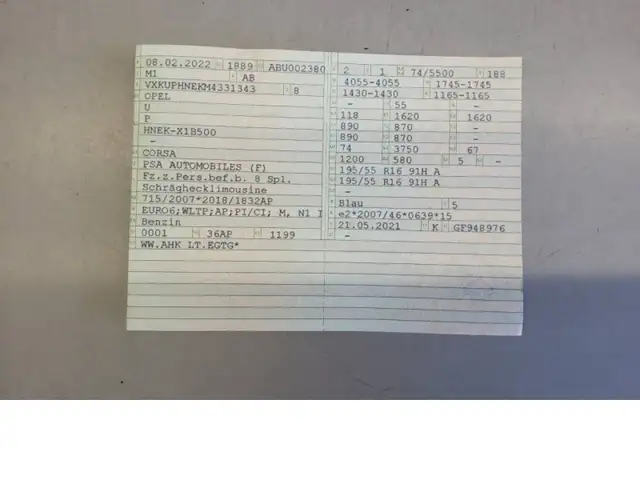 08.02.2022 1889 ABU002380
M1 AB
VXKUPHNEKM4331343 8
OPEL
U
P
HNEK-X1B500
-
CORSA
PSA AUTOMOBILES (F)
Fz.z.Pers.bef.b. 8 Spl.
Schräghecklimousine
715/2007*2018/1832AP
EURO6;WLTP;AP;PI/CI; M, N1 I
Benzin
0001 36AP 1199
WW.AHK LT.EGTG*
2 1 74/5500 188
4055-4055 1745-1745
1430-1430 1165-1165
- 55 -
118 1620 1620
890 870 -
890 870 -
74 3750 67
1200 580 5 -
195/55 R16 91H A
195/55 R16 91H A
-
Blau 5
e2*2007/46*0639*15
21.05.2021 K GF948976
-